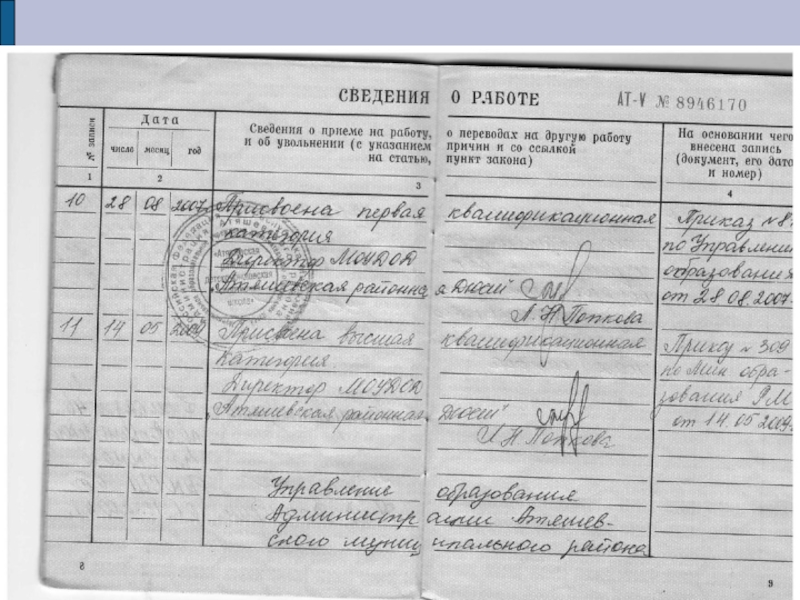 СВЕДЕНИЯ О РАБОТЕ АТ-V № 8946170
№ записи
Дата
Сведения о приеме на работу, о переводах на другую работу
и об увольнении (с указанием причин и со ссылкой
на статью, пункт закона)
На основании чего
внесена запись
(документ, его дата
и номер)
число месяц год
1 2 3 4
10 28 08 2007 Присвоена первая квалификационная Приказ № 8
категория по Управлени
Директор МОУДОД образования
"Атяшевская районная ДЮСШ" от 28.08.2007.
Л. Н Попкова
11 14 05 2009 Присвоена высшая квалификационная Приказ № 309
категория по Мин. обра-
Директор МОУДОД зования РМ
"Атяшевская районная ДЮСШ" от 14.05 2009.
Л Н Попкова
Управление образования
Администрации Атяшев-
ского муниципального района
8 9